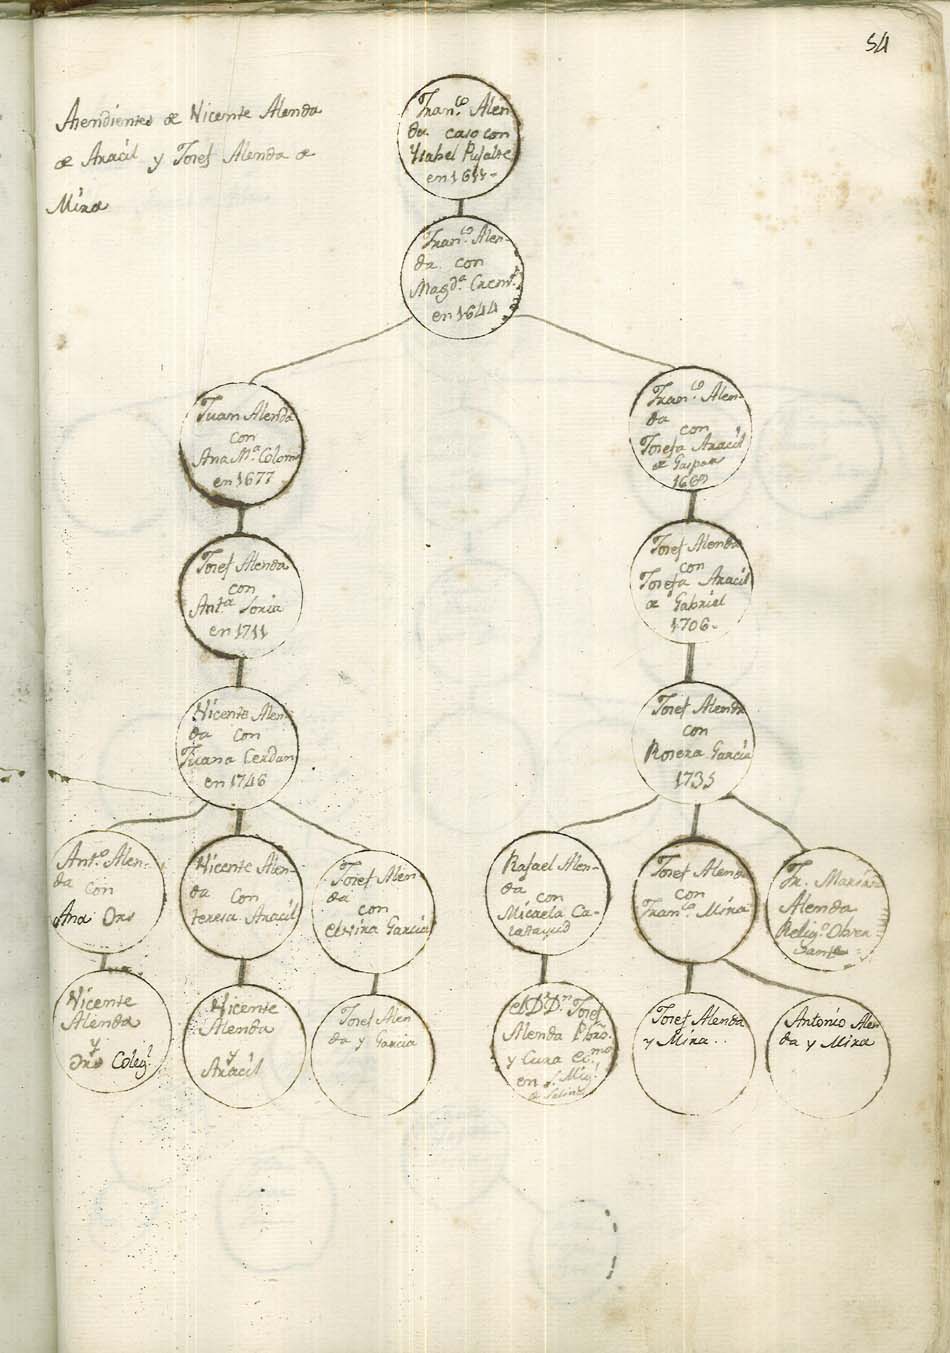 54
Asendientes de Vicente Alenda
de Aracil y Josef Alenda de
Mira
Franco. Alen
da caso con
Ysabel Pujalte
en 1611-
Franco. Alen-
da con
Magda. Cremt.
en 1644
Juan Alenda
con
Ana Ma. Colom
en 1677
Franco. Alen-
da
con
Josefa Aracil
de Gaspar
Josef Alenda
con
Anta. Soria
en 1711
Josef Alenda
con
Josefa Aracil
de Gabriel
1706-
Vicente Alen
da con
Juana Cerdan
en 1746
Josef Alenda
con
Rosera Garcia
1735
Anto. Alen-
da con
Ana Ors
Vicente Alen-
da con
teresa Aracil
Josef Alen
da
con
elvira Garcia
Rafael Alen-
da
con
Micaela Ca-
latayud
Josef Alenda
con
Franca. Mira
Fr. Mariano
Alenda
Religo. Obser
bante
Vicente
Alenda
y
Ors Colegl.
Vicente
Alenda
y
Aracil
Josef Alen
da y Garcia
el Dr. Dn. Josef
Alenda Pbro.
y Cura Ecmo.
en S. Migl.
de Salinas
Josef Alenda
y Mira..
Antonio Alen
da y Mira